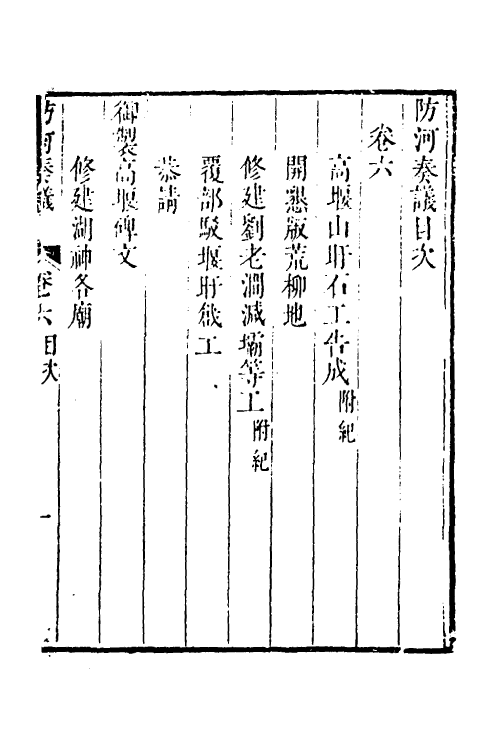 防河奏議目次
卷六
高堰山盱石工告成附紀
開懇版荒柳地
修建劉老澗減壩等工附紀
覆部駁堰盱餓工
恭請
御製高堰碑文
修建湖神各廟
防河奏議 卷六目次 一